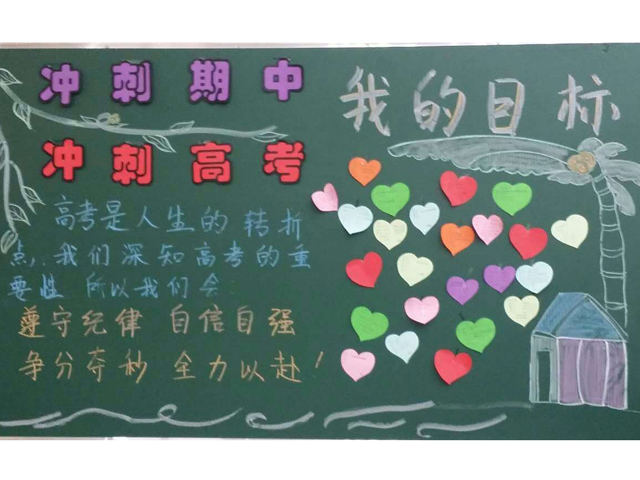 冲刺期中
冲刺高考
高考是人生的转折
点,我们深知高考的重
要性 所以我们会:
遵守纪律 自信自强
争分夺秒 全力以赴!
我的目标